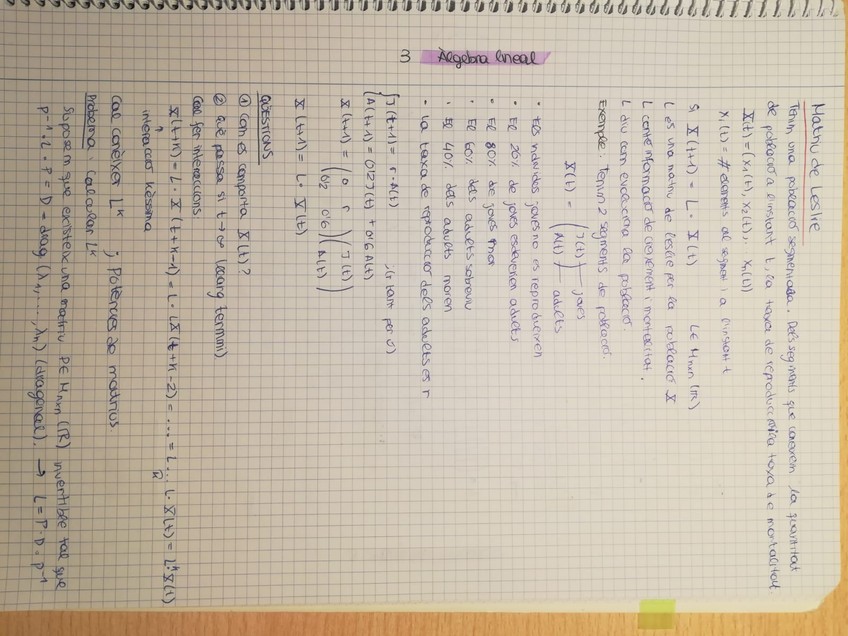 3 Àlgebra lineal
Matriu de Leslie
Tenim una població segmentada. Dels segments que coneixem la quantitat
de població a l'instant t, la taxa de reproducció i la taxa de mortalitat
X(t) = (x₁(t), x₂(t), xₙ(t))
xᵢ(t) = # elements al segment i a l'instant t
Si X(t+1) = L · X(t) L ∈ Mₙₓₙ(ℝ)
L és una matriu de leslie per la població X
L conté informació de creixement i mortalitat.
L diu com evoluciona la població.
Exemple: Tenim 2 segments de població:
X(t) = (J(t) A(t)) joves adults
· Els individus joves no es reprodueixen
· El 20% de joves esdevenen adults
· El 80% de joves mor
· El 60% dels adults sobreviu
· El 40% dels adults moren
· La taxa de reproducció dels adults és r
{ J(t+1) = r · A(t)
A(t+1) = 0'2 J(t) + 0'6 A(t)
X(t+1) = (0 r 0'2 0'6) (J(t) A(t))
X(t+1) = L · X(t)
QÜESTIONS
① Com es comporta X(t)?
② què passa si t → ∞ (llarg termini)
Cal fer interaccions:
X(t+k) = L · X(t+k-1) = L · L X(t+k-2) = ... = L ... L · X(t) = Lᵏ X(t)
k
interacció k-èssima
Cal conèixer Lᵏ ; Potències de matrius.
Problema: Calcular Lᵏ
Suposem que existeix una matriu P ∈ Mₙₓₙ(ℝ) invertible tal que
P⁻¹ · L · P = D = diag (λ₁, ..., λₙ) (diagonal). → L = P · D · P⁻¹